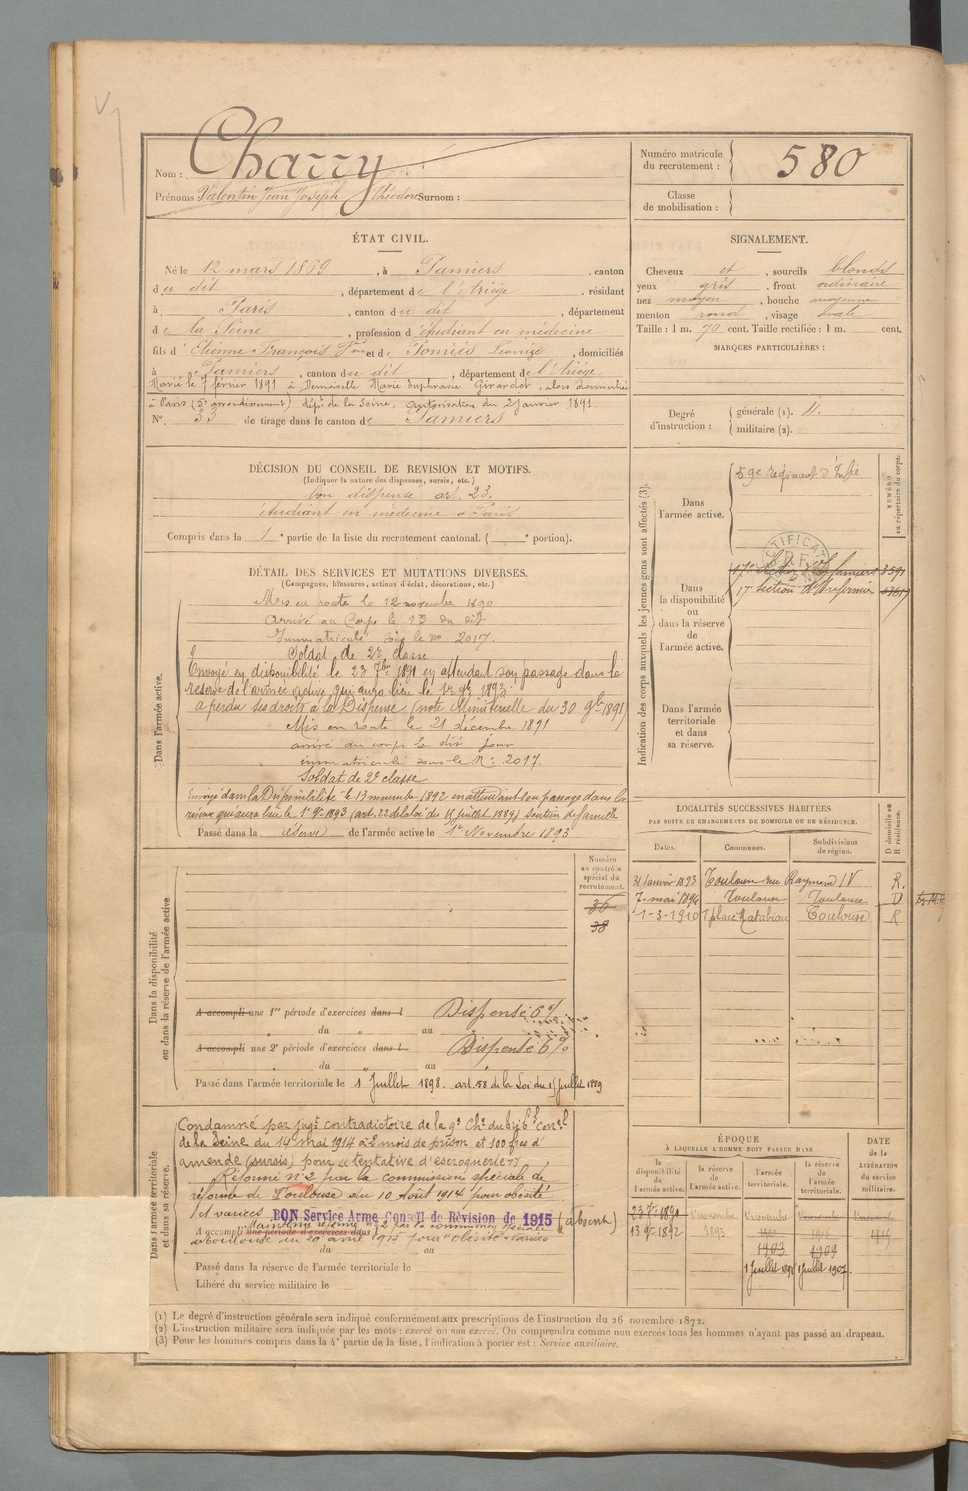 Nom : Charry
Prénoms Valentin Jean Joseph Théodore Surnom :
Numéro matricule du recrutement : 580
Classe de mobilisation :
ÉTAT CIVIL.
Né le 12 mars 1869, à Pamiers, canton
du dit, département de l'Ariège, résidant
à Paris, canton du dit, département
de la Seine, profession d'étudiant en médecine
fils d'Etienne François et de Pomiès, domiciliés
à Pamiers, canton du dit, département de l'Ariège.
Marié le 7 février 1891 à Demoiselle Marie Euphrasie Girardot, alors domiciliée
à Paris (5e arrondissement) dépt de la Seine, autorisation du 2 janvier 1891.
N° 33 de tirage dans le canton de Pamiers
SIGNALEMENT.
Cheveux et, sourcils blonds
yeux gris, front ordinaire
nez moyen, bouche moyenne
menton rond, visage ovale
Taille : 1 m. 70 cent. Taille rectifiée : 1 m. cent.
MARQUES PARTICULIÈRES :
Degré d'instruction :
générale (1).
militaire (2).
DÉCISION DU CONSEIL DE REVISION ET MOTIFS.
(Indiquer la nature des dispenses, sursis, etc.)
bon dispensé art. 23.
étudiant en médecine à Paris
Compris dans la 1e partie de la liste du recrutement cantonal. ( e portion).
DÉTAIL DES SERVICES ET MUTATIONS DIVERSES.
(Campagnes, blessures, actions d'éclat, décorations, etc.)
Dans l'armée active.
Mis en route le 12 novembre 1890
Arrivé au Corps le 13 du dit
Immatriculé sous le no 2017.
Soldat de 2e classe
Envoyé en disponibilité le 23 7bre 1891 en attendant son passage dans la
réserve de l'armée active qui aura lieu le 1er 9bre 1893.
a perdu ses droits à la Dispense (note Ministérielle du 30 9bre 1891)
Mis en route le 21 décembre 1891
arrivé au corps le dit jour
immatriculé sous le N° 2017.
Soldat de 2e classe
Envoyé dans la Disponibilité le 13 novembre 1892 en attendant son passage dans la
réserve qui aura lieu le 1er 9bre 1893 (art. 22 de la loi du 15 juillet 1889) soutien de famille
Passé dans la réserve de l'armée active le 1er Novembre 1893
Indication des corps auxquels les jeunes gens sont affectés (3).
NUMÉRO au répertoire du corps.
Dans l'armée active.
59e régiment d'Infie
Dans la disponibilité ou dans la réserve de l'armée active.
17e Section d'Infirmiers 3591
17e Section d'Infirmiers
Dans l'armée territoriale et dans sa réserve.
LOCALITÉS SUCCESSIVES HABITÉES
PAR SUITE DE CHANGEMENTS DE DOMICILE OU DE RÉSIDENCE.
D domicile ou R résidence.
Dates. Communes. Subdivisions de région.
31 Janvier 1893 Toulouse rue Raymond IV R.
7 mai 1894 Toulouse Toulouse D
1-3-1910 7 place Matabiau Toulouse R
Dans la disponibilité ou dans la réserve de l'armée active
Numéro au contrôle spécial du recrutement.
36
38
A accompli une 1re période d'exercices dans l Dispensé 6%
du au
A accompli une 2e période d'exercices dans l Dispensé 6%
du au
Passé dans l'armée territoriale le 1 Juillet 1898. art. 58 de la Loi du 15 juillet 1889
Dans l'armée territoriale et dans sa réserve.
Condamné par jugt contradictoire de la 9e Ch. du tribl correl
de la Seine du 14 mai 1914 à 2 mois de prison et 100 frcs d'
amende (sursis) pour "tentative d'escroquerie".
Réformé n° 2 par la commission spéciale de
réforme de Toulouse du 10 Août 1914 pour obésité
et varices.
BON Service Armé Conseil de Révision de 1915 (absent)
Maintenu réformé n° 2 par la commission spéciale
A accompli une période d'exercices dans l
de Toulouse du 20 avril 1915 pour "Obésité - varices
du au
Passé dans la réserve de l'armée territoriale le
Libéré du service militaire le
ÉPOQUE
À LAQUELLE L'HOMME DOIT PASSER DANS
DATE de la LIBÉRATION du service militaire.
la disponibilité de l'armée active.
la réserve de l'armée active.
l'armée territoriale.
la réserve de l'armée territoriale.
23 7bre 1891 1 novembre 1 novembre 1 novembre 1 novembre
13 9bre 1892 1893
1903 1909
1 Juillet 1898 1 Juillet 1907.
(1) Le degré d'instruction générale sera indiqué conformément aux prescriptions de l'instruction du 26 novembre 1872.
(2) L'instruction militaire sera indiquée par les mots : exercé ou non exercé. On comprendra comme non exercés tous les hommes n'ayant pas passé au drapeau.
(3) Pour les hommes compris dans la 4e partie de la liste, l'indication à porter est : Service auxiliaire.